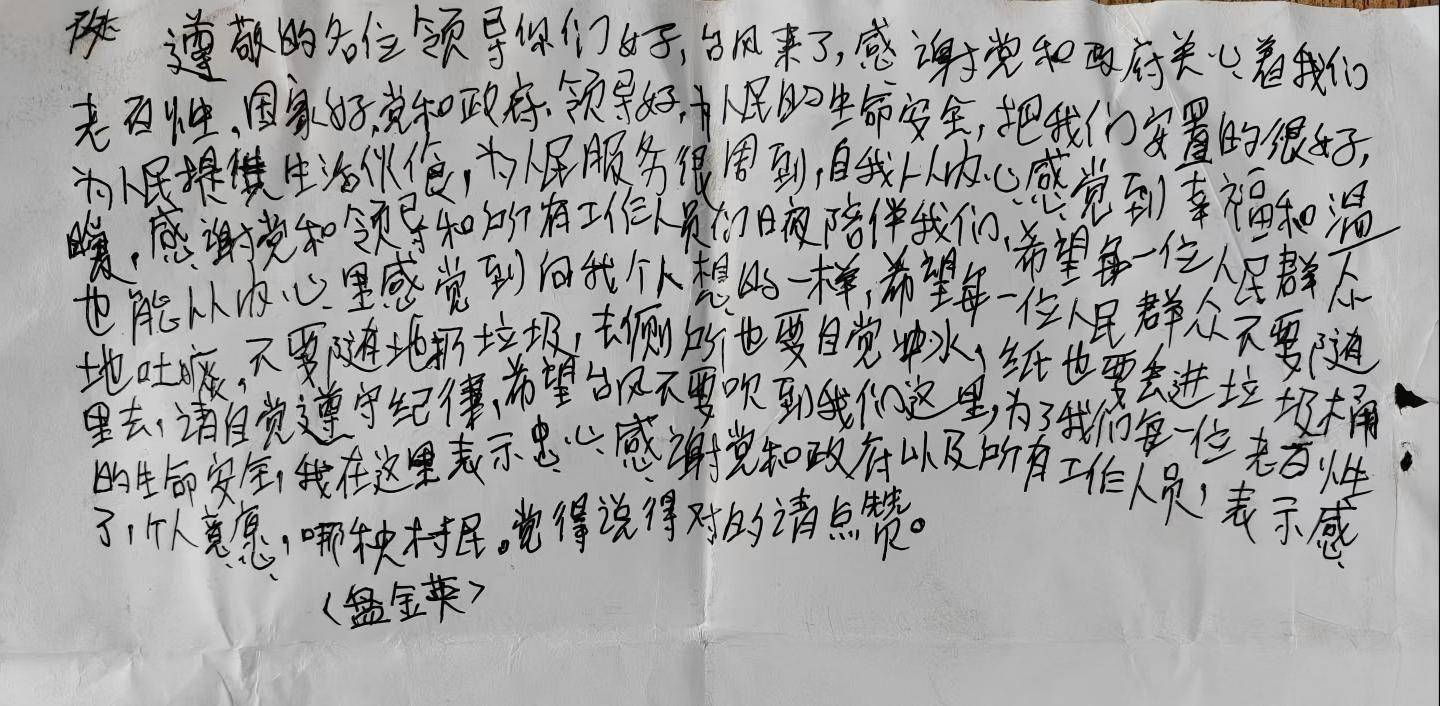 尊敬的各位领导你们好,台风来了,感谢党和政府关心着我们
老百性,国家好,党和政府、领导好,为人民的生命安全,把我们安置的很好,
为人民提供生活伙食,为人民服务很周到,自我从内心感觉到幸福和温
暖,感谢党和领导和所有工作人员们日夜陪伴我们,希望每一位人民群众
也能从内心里感觉到向我个人想的一样,希望每一位人民群众不要随
地吐痰,不要随地扔垃圾,去侧所也要自觉冲水,纸也要丢进垃圾桶
里去,请自觉遵守纪律,希望台风不要吹到我们这里,为了我们每一位老百性
的生命安全,我在这里表示忠心感谢党和政府以及所有工作人员,表示感
了,个人意愿,哪秧村民。觉得说得对的请点赞。
〈盘金英〉